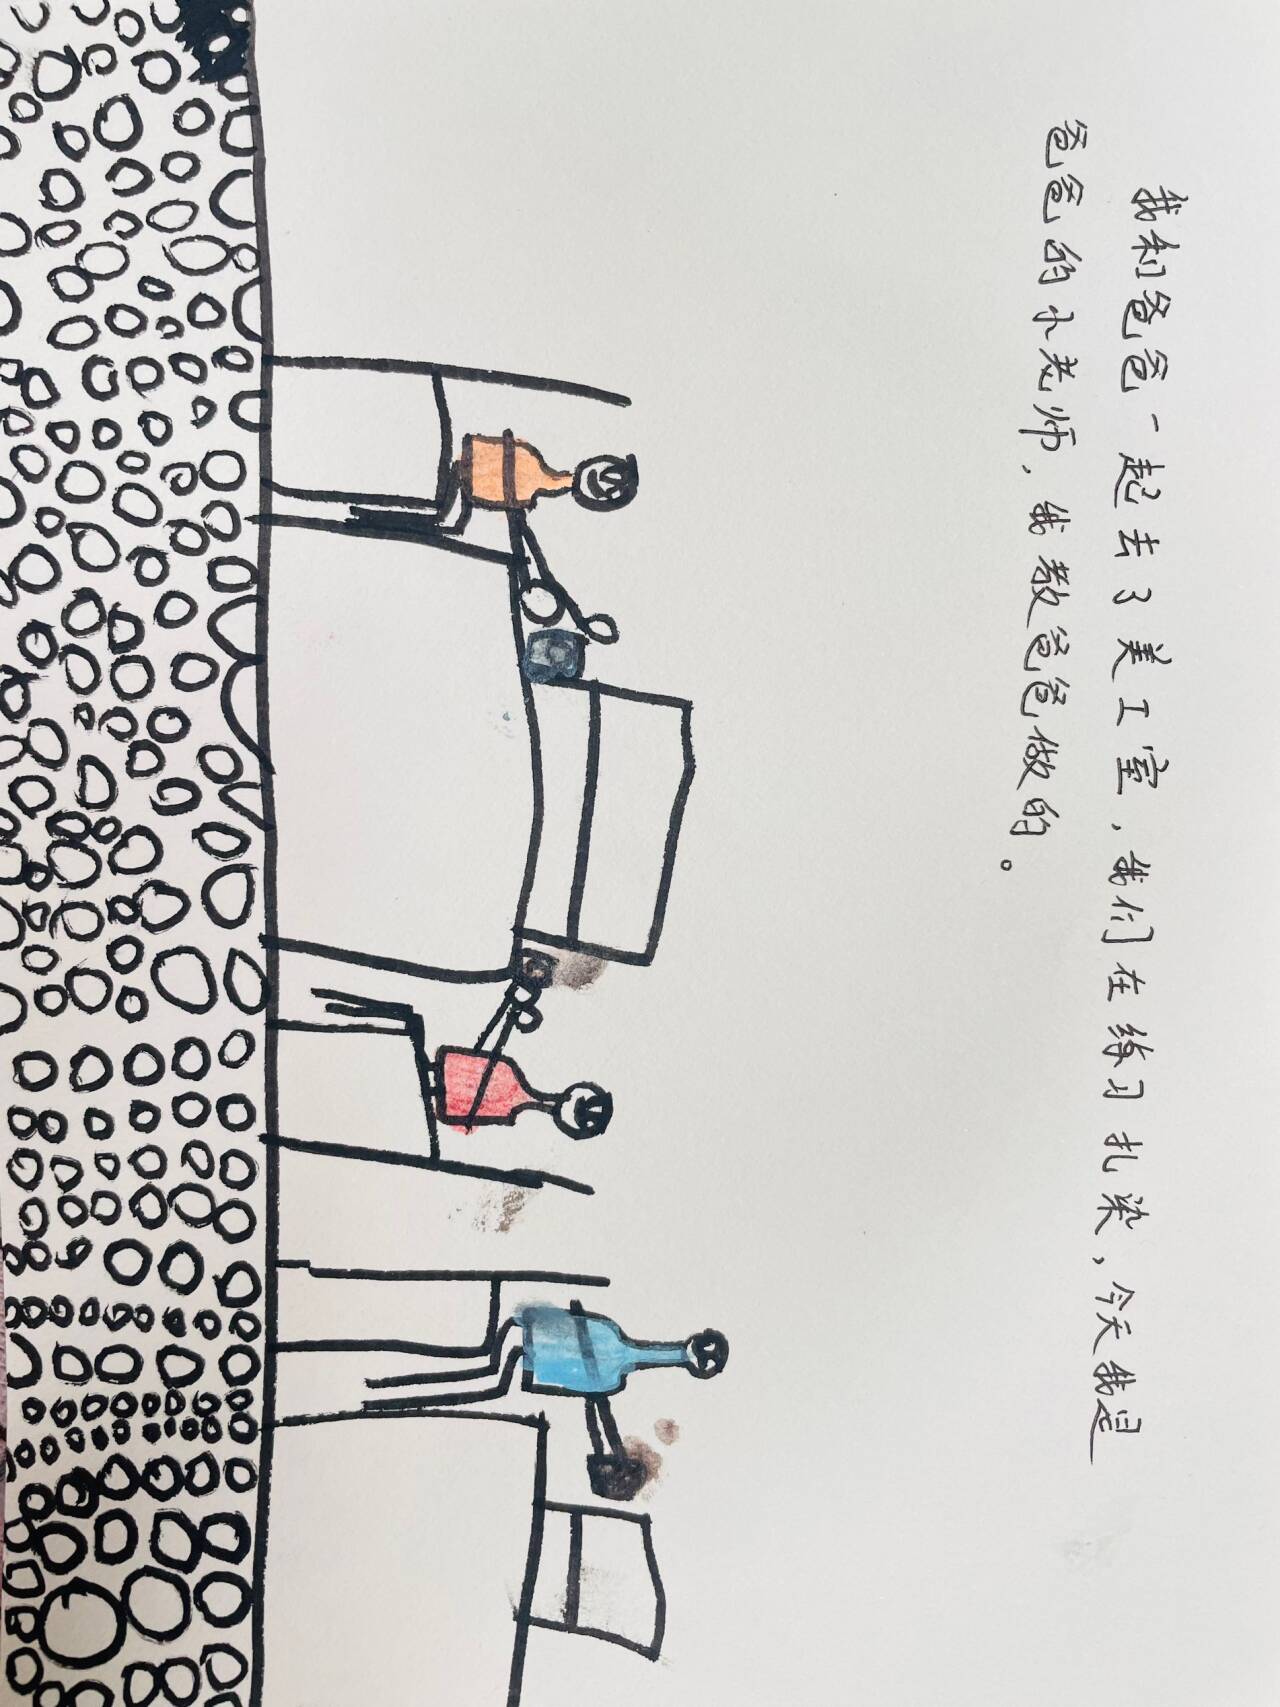 我和爸爸一起去了美工室，我们在练习扎染，今天我是
爸爸的小老师，我教爸爸做的。